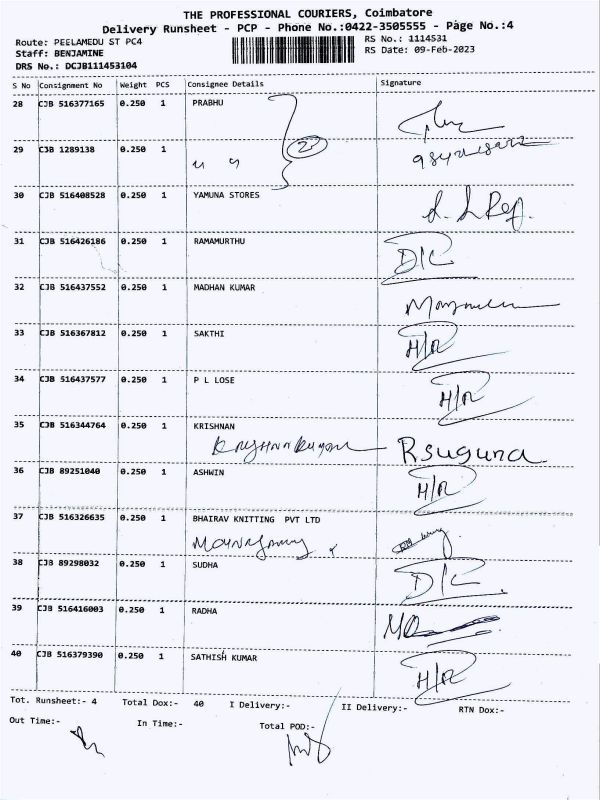 THE PROFESSIONAL COURIERS, Coimbatore
Delivery Runsheet - PCP - Phone No.:0422-3505555 - Page No.:4
Route: PEELAMEDU ST PC4
RS No.: 1114531
Staff: BENJAMINE
RS Date: 09-Feb-2023
DRS No.: DCJB111453104
S No Consignment No Weight PCS Consignee Details Signature
28 CJB 516377165 0.250 1 PRABHU
29 CJB 1289138 0.250 1
30 CJB 516408528 0.250 1 YAMUNA STORES
31 CJB 516426186 0.250 1 RAMAMURTHU D/C
32 CJB 516437552 0.250 1 MADHAN KUMAR
33 CJB 516367812 0.250 1 SAKTHI H/R
34 CJB 516437577 0.250 1 P L LOSE H/R
35 CJB 516344764 0.250 1 KRISHNAN
Rsuguna
36 CJB 89251040 0.250 1 ASHWIN H/R
37 CJB 516326635 0.250 1 BHAIRAV KNITTING PVT LTD
38 CJB 89298032 0.250 1 SUDHA D/C
39 CJB 516416003 0.250 1 RADHA
40 CJB 516379390 0.250 1 SATHISH KUMAR H/R
Tot. Runsheet:- 4 Total Dox:- 40 I Delivery:- II Delivery:- RTN Dox:-
Out Time:- In Time:- Total POD:-